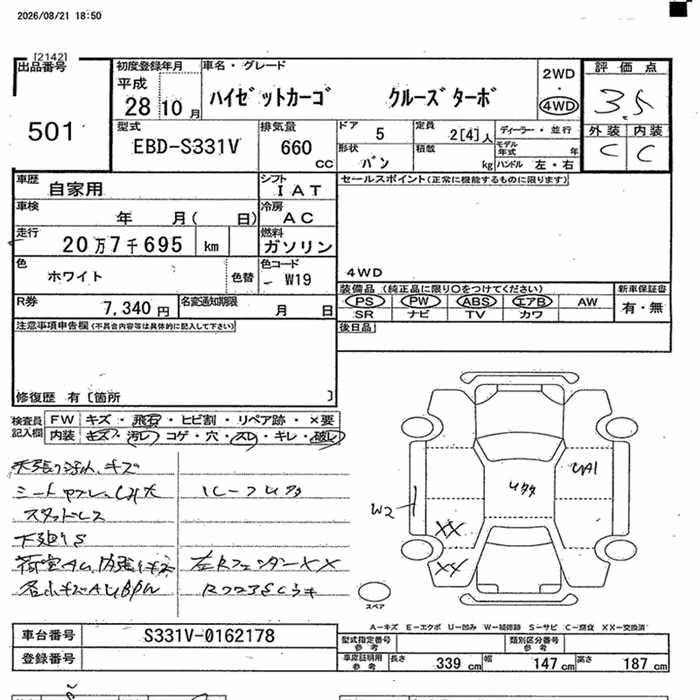 2026/08/21 18:50
[2142]
出品番号
501
初度登録年月
平成
28 10 月
車名・グレード
ハイゼットカーゴ クルーズターボ
2WD
4WD
評価点
3.5
外装 内装
C C
型式
EBD-S331V
排気量
660 cc
ドア 5
定員 2[4]人
ディーラー・並行
形状 バン
積載 kg
モデル年式 年
ハンドル 左・右
車歴 自家用
シフト IAT
セールスポイント(正常に機能するものに限ります)
車検 年 月( 日)
冷房 AC
走行 20万7千695 km
燃料 ガソリン
色 ホワイト 色替
色コード W19
4WD
装備品 (純正品に限り○をつけてください)
新車保証書
PS PW ABS エアB AW
有・無
SR ナビ TV カワ
R券 7,340 円
名変通知期限 月 日
後日品
注意事項申告欄(不具合内容等は具体的に記入して下さい)
修復歴 有〔箇所 〕
検査員記入欄
FW キズ・飛石・ヒビ割・リペア跡・×要
内装 キズ・汚レ・コゲ・穴・スレ・キレ・破レ
スタッドレス
下廻りS
左Rフェンダー××
W2
UA1
××
××
スペア
A-キズ E-エクボ U-凹み W-補修跡 S-サビ C-腐食 XX-交換済
車台番号 S331V-0162178
登録番号
型式指定番号 参考
類別区分番号 参考
車庫証明用 参考
長さ 339 cm
幅 147 cm
高さ 187 cm